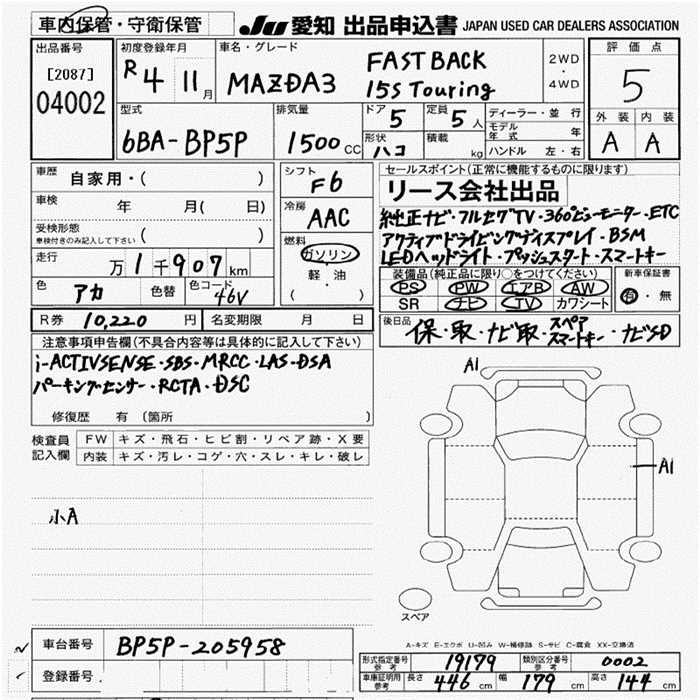 車内保管・守衛保管
JU 愛知 出品申込書 JAPAN USED CAR DEALERS ASSOCIATION
出品番号
[2087]
04002
初度登録年月
R4 11月
車名・グレード
MAZDA3
FASTBACK
15S Touring
2WD
・
4WD
評価点
5
外装 内装
A A
型式
6BA-BP5P
排気量
1500 CC
ドア
5
定員
5 人
形状
ハコ
積載
kg
ディーラー・並行
モデル年式 年
ハンドル 左・右
車歴
自家用・( )
車検
年 月( 日)
受検形態
車検付きのみ記入して下さい ( )
走行
万1千907km
色
アカ
色替
色コード
46V
シフト
F6
冷房
AAC
燃料
ガソリン
軽・油
( )
セールスポイント(正常に機能するものに限ります)
リース会社出品
純正ナビ・フルセグTV・360°ビューモニター・ETC
アクティブドライビングディスプレイ・BSM
LEDヘッドライト・プッシュスタート・スマートキー
装備品(純正品に限り○をつけてください)
PS PW エアB AW
SR ナビ TV カワシート
新車保証書
有・無
R券 10,220 円
名変期限 月 日
後日品
保・取・ナビ取・スペアスマートキー・ナビSD
注意事項申告欄(不具合内容等は具体的に記入して下さい)
i-ACTIVSENSE・SBS・MRCC・LAS・DSA
パーキングセンサー・RCTA・DSC
修復歴 有 (箇所 )
検査員記入欄
FW キズ・飛石・ヒビ割・リペア跡・X要
内装 キズ・汚レ・コゲ・穴・スレ・キレ・破レ
小A
A1
A1
スペア
A-キズ E-エクボ U-凹み W-補修跡 S-サビ C-腐食 XX-交換済
車台番号
BP5P-205958
登録番号
形式指定番号
参考
19179
類別区分番号
参考
0002
車庫証明用
参考
長さ 446 cm 幅 179 cm 高さ 144 cm